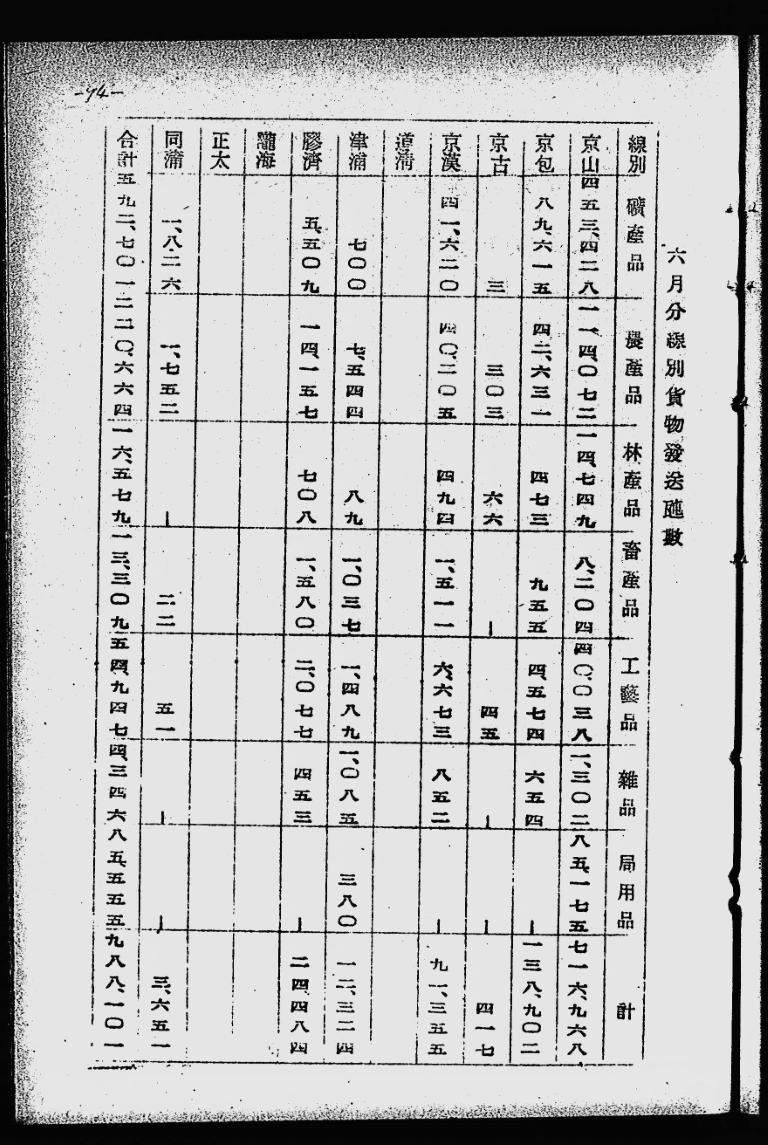 -94-
六月分線別貨物發送瓲數
線別 礦產品 農產品 林產品 畜產品 工藝品 雜品 局用品 計
京山 四五三、四二八 一一四、〇七二 一四、七四九 八、二〇四 四〇、〇三八 一、三〇二 八五、一七五 七一六、九六八
京包 八九、六一五 四二、六三一 四七三 九五五 四、五七四 六五四 ー 一三八、九〇二
京古 三 三〇三 六六 ー 四五 ー ー 四一七
京漢 四一、六二〇 四〇、二〇五 四九四 一、五一一 六、六七三 八五二 ー 九一、三五五
道清
津浦 七〇〇 七、五四四 八九 一、〇三七 一、四八九 一、〇八五 三八〇 一二、三二四
膠濟 五、五〇九 一四、一五七 七〇八 一、五八〇 二、〇七七 四五三 ー 二四四八四
隴海
正太
同蒲 一、八二六 一、七五二 ー 二二 五一 ー ー 三、六五一
合計 五九二、七〇一 二二〇、六六四 一六、五七九 一三、三〇九 五四、九四七 四、三四六 八五、五五五 九八八、一〇一